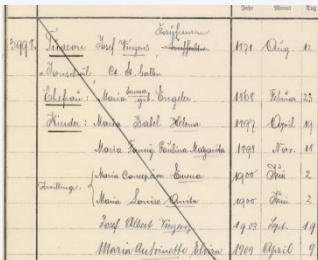 Jahr Monat Tag
Kaufmann
3998. Josef Vinzens 1871 Aug.
Ct. St. Gallen
Ehefrau: Maria Emma geb. Engeler 1868 Februar 23
Kinder: Maria Isabel Helena 1897 April 19
Maria Fanny Paulina Margarita 1898 Nov. 18
Zwillinge { Maria Conception Emma 1900 Juni 2
Maria Louise 1900 Juni 2
Josef Albert Vinzens 1903 Sept. 19
Maria Antoinette 1909 April 9